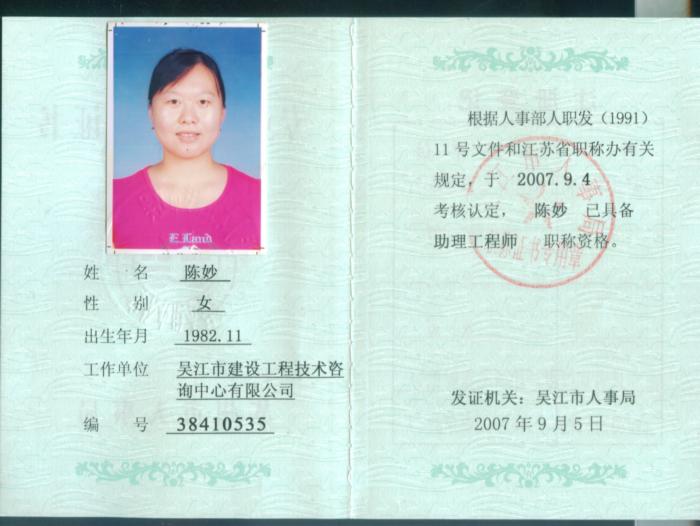 E.Land
姓 名 陈妙
性 别 女
出生年月 1982.11
工作单位 吴江市建设工程技术咨
询中心有限公司
编 号 38410535
根据人事部人职发（1991）
11号文件和江苏省职称办有关
规定，于 2007.9.4
考核认定， 陈妙 已具备
助理工程师 职称资格。
发证机关：吴江市人事局
2007年9月5日